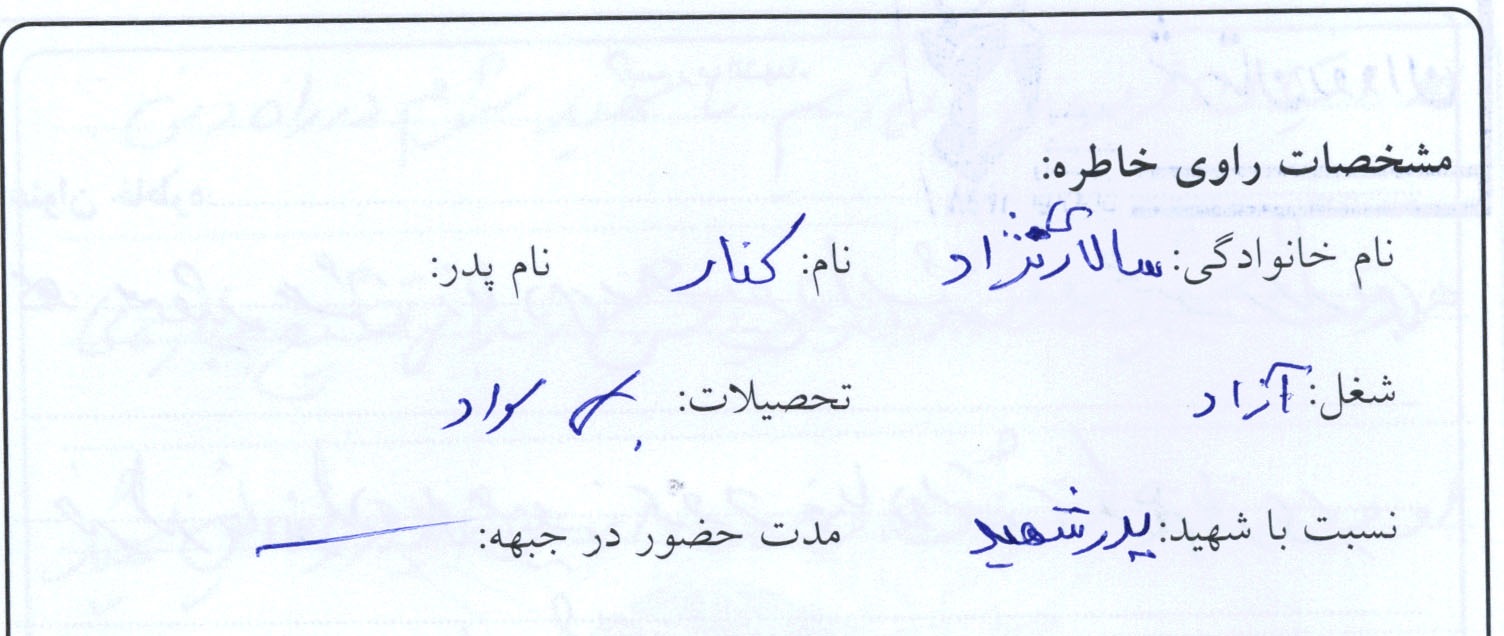 مشخصات راوی خاطره:
نام خانوادگی: سالاری نژاد نام: کنار نام پدر:
شغل: آزاد تحصیلات: بی سواد
نسبت با شهید: پدر شهید مدت حضور در جبهه: ـــ